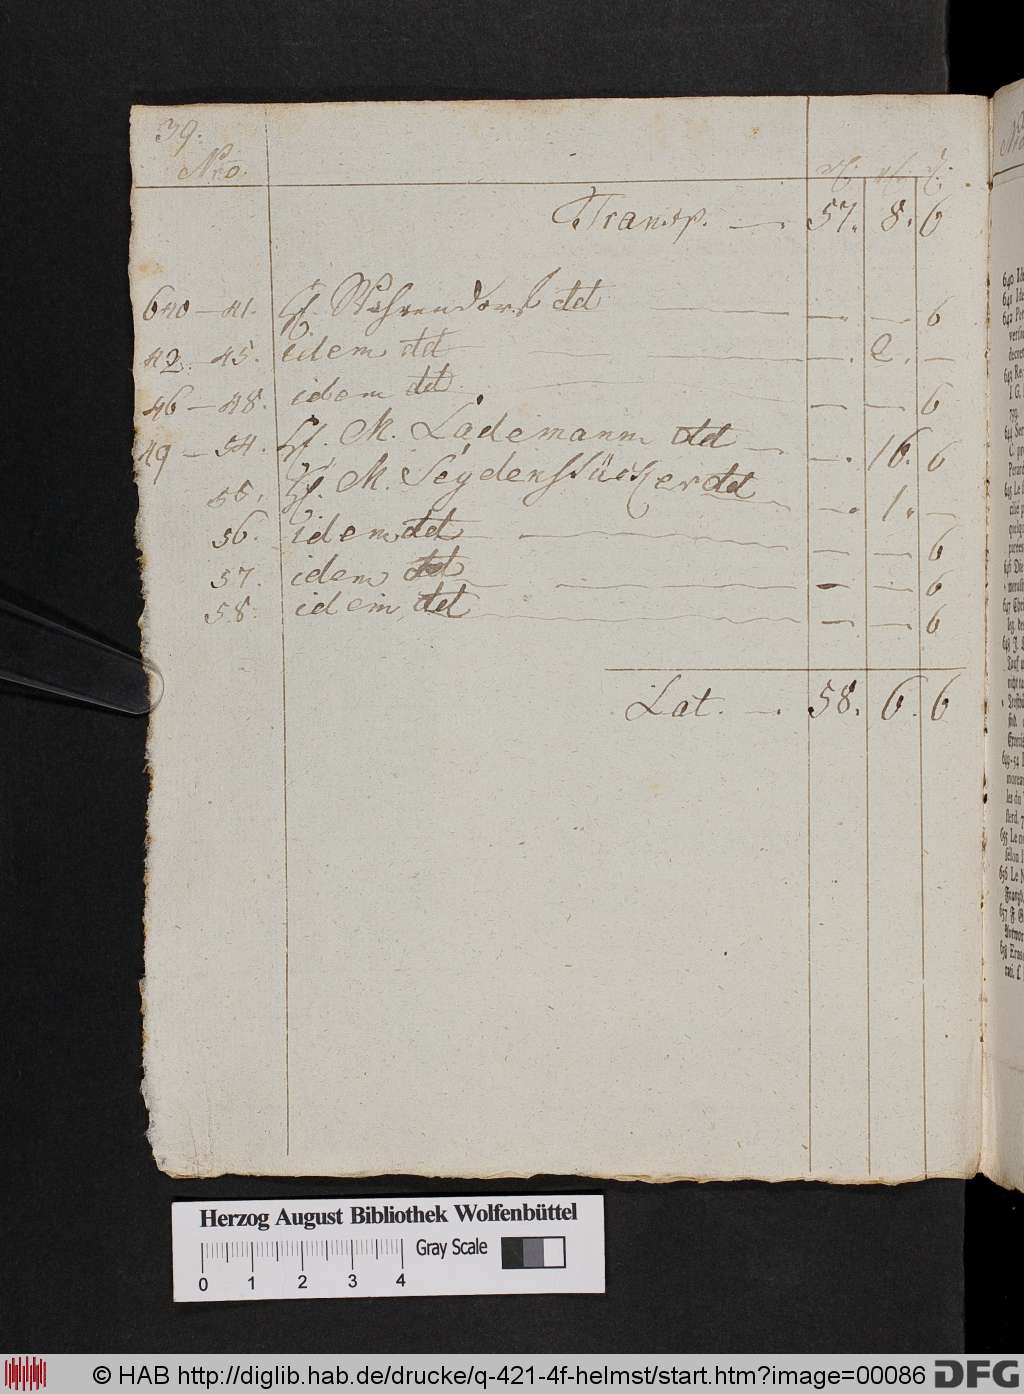 39.
Nro.
Transp. — 57. 8. 6
640 – 41. H. Wahrendorf dd — — — 6
42. – 45. idem dd — —. 2. —
46 – 48. idem dd — — — 6
49 – 54. H. M. Lademann dd — —. 16. 6
55. H. M. Seydenstücker dd — —. 1. —
56. idem dd — — — 6
57. idem dd — — — 6
58. idem dd — — — 6
Lat. — 58. 6. 6
Herzog August Bibliothek Wolfenbüttel
Gray Scale
0 1 2 3 4
© HAB http://diglib.hab.de/drucke/q-421-4f-helmst/start.htm?image=00086
DFG